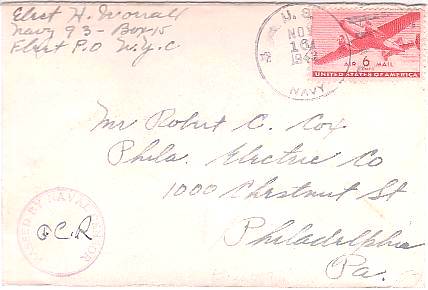 Elect H. Worrall
Navy 93 - Box 15
Fleet P.O. N.Y.C
U.S.
NOV
16
1942
NAVY
AIR 6 MAIL
CENTS
UNITED STATES OF AMERICA
Mr Robert C. Cox
Phila. Electric Co
1000 Chestnut St
Philadelphia
Pa.
PASSED BY NAVAL CENSOR